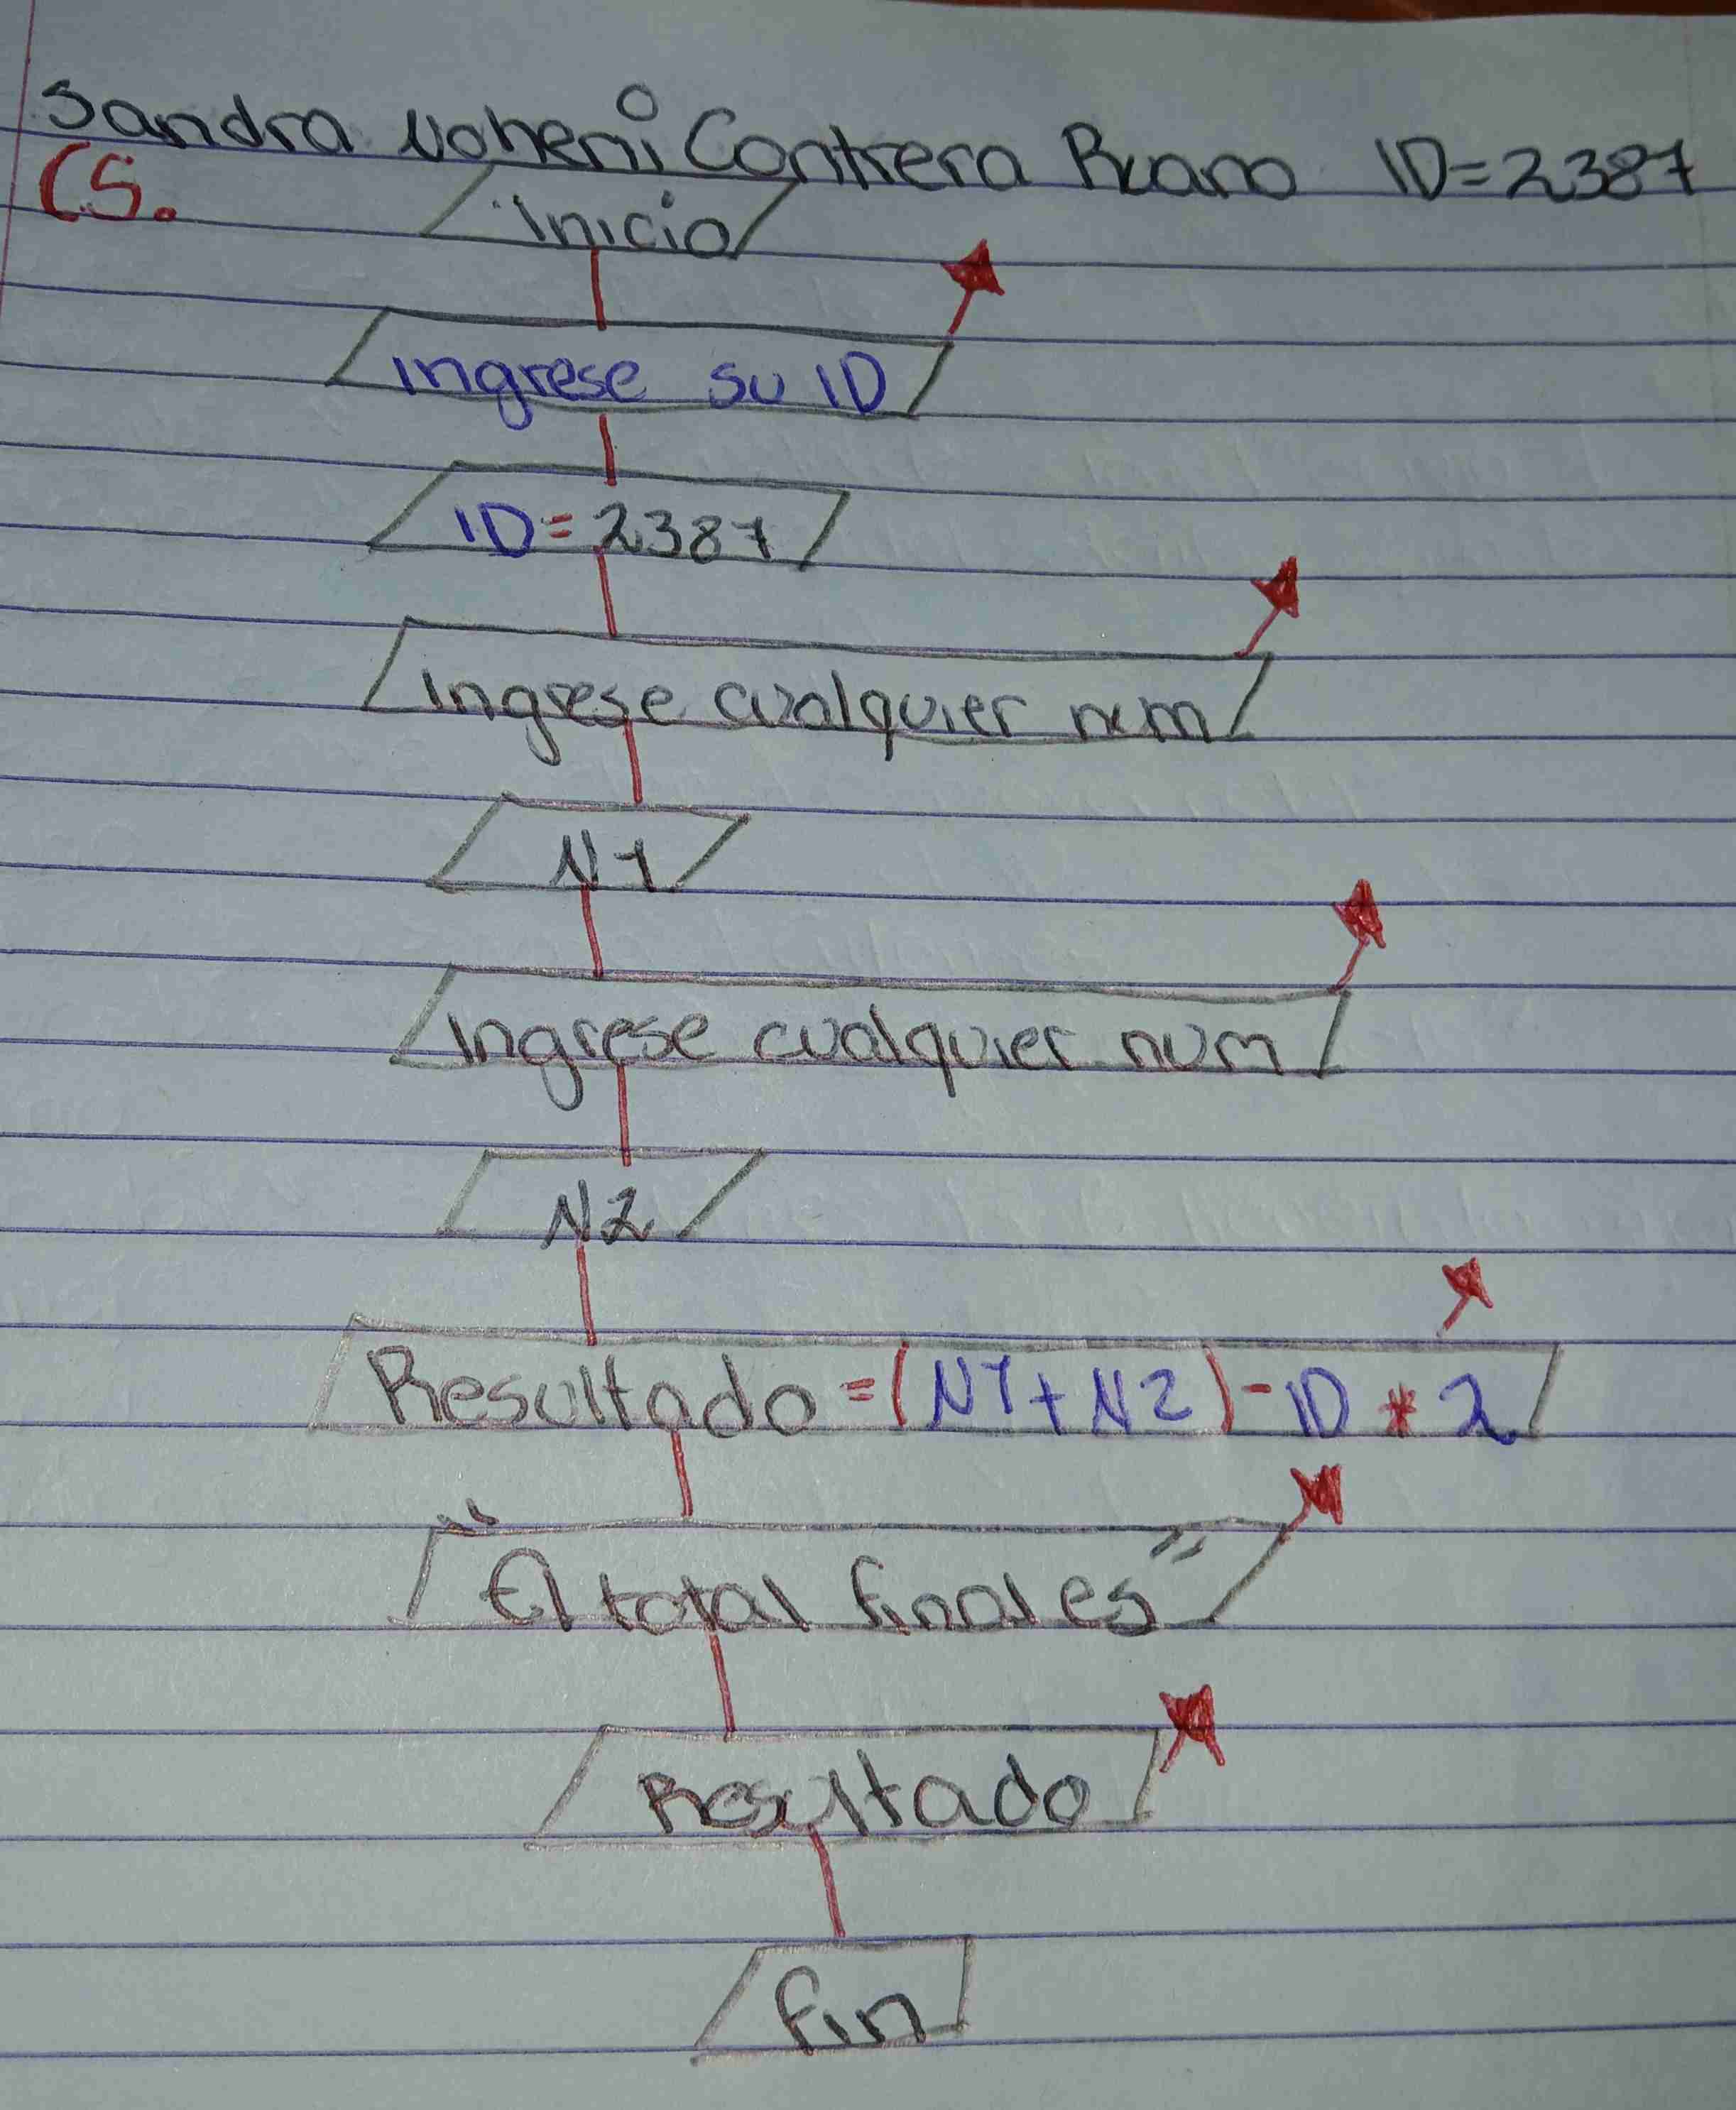 Sandra Noheni Contrera Ruano ID=2387
CS.
Inicio
Ingrese su ID
ID=2387
Ingrese cualquier num
N1
Ingrese cualquier num
N2
Resultado=(N1+N2)-ID*2
"El total final es"
Resultado
fin